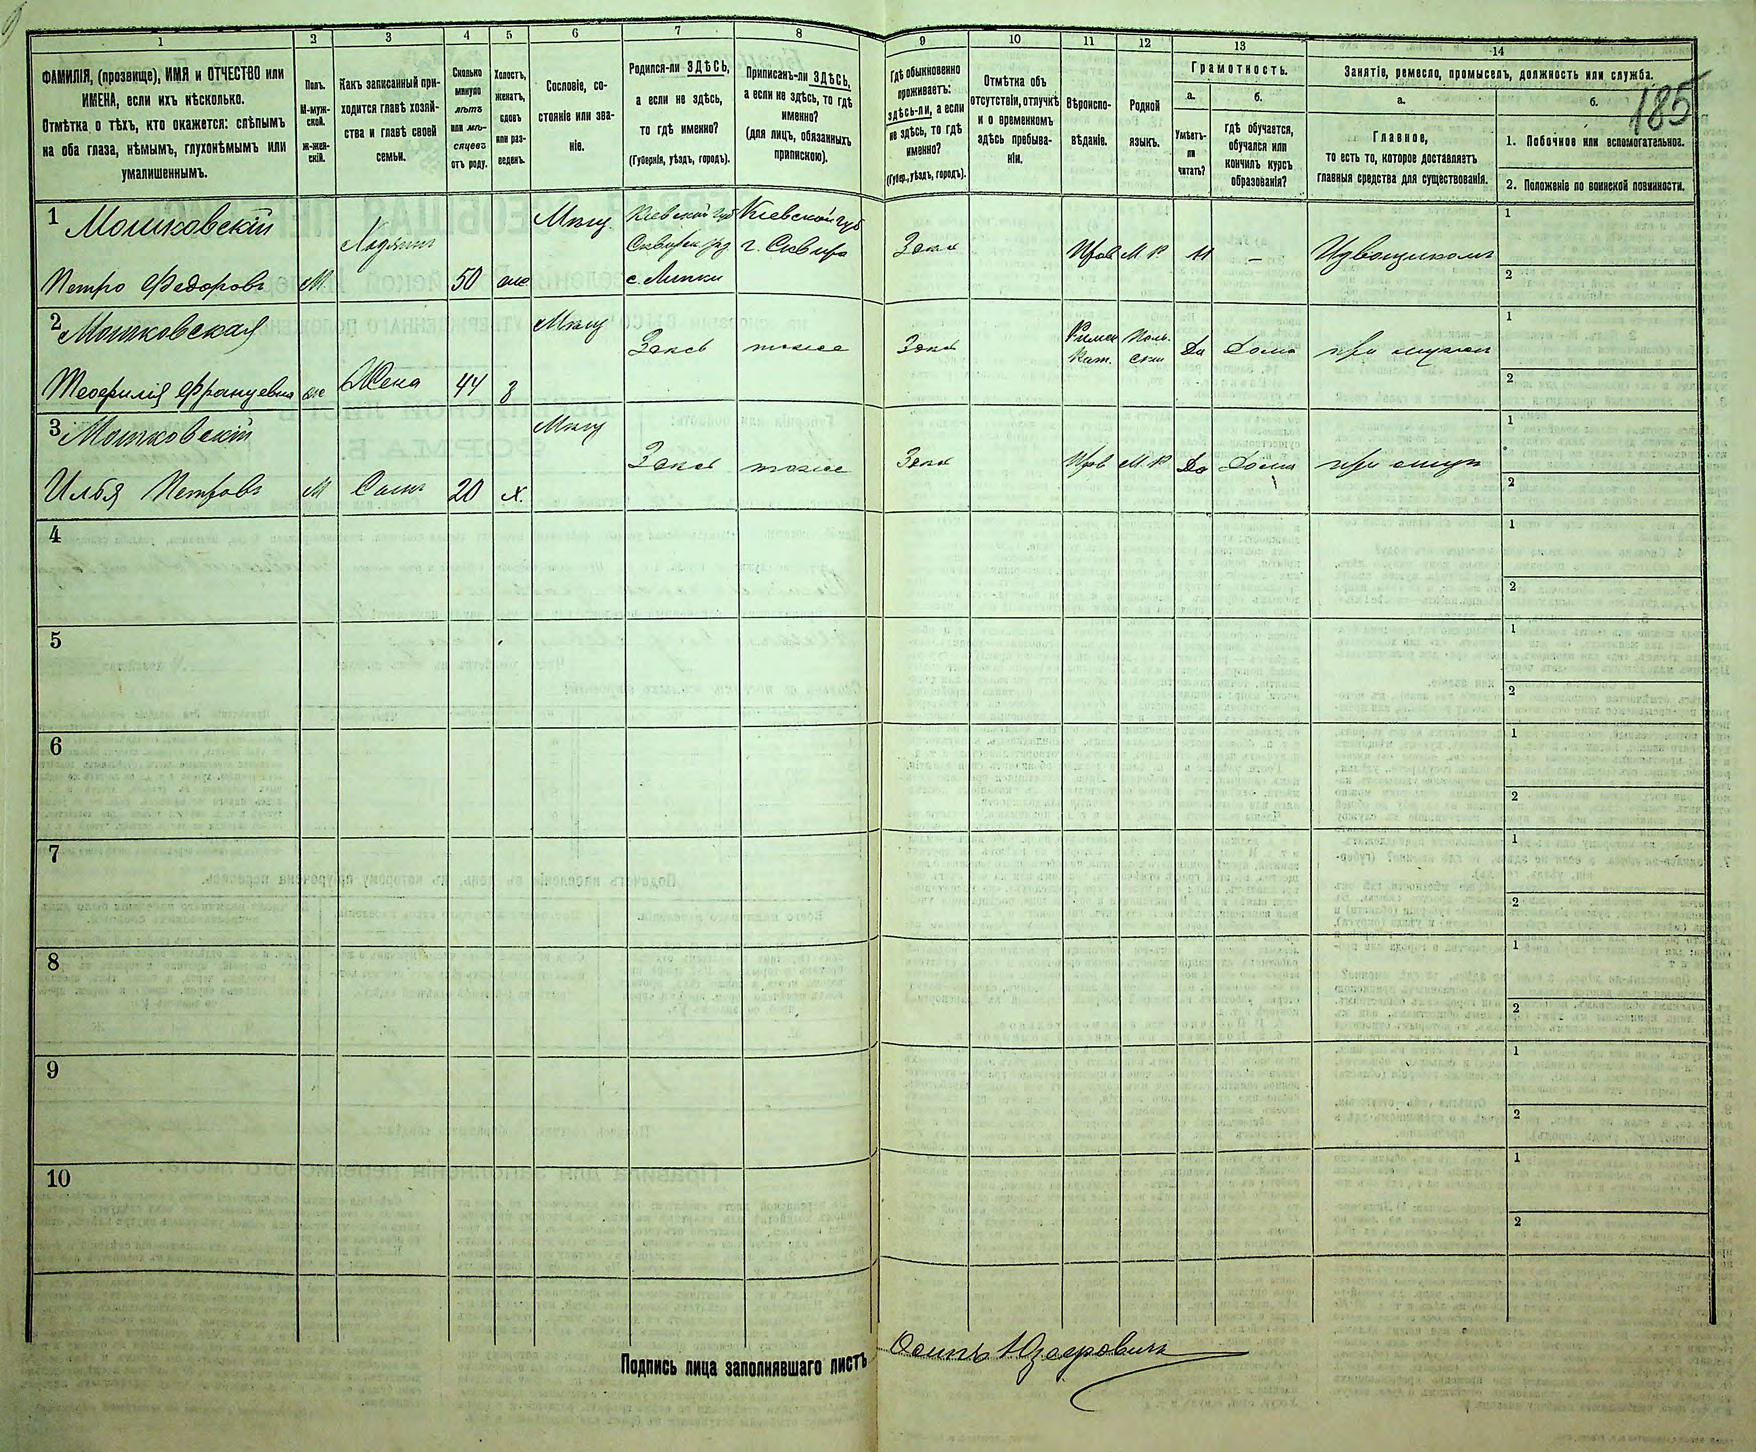 1 2 3 4 5 6 7 8 9 10 11 12 13 14
185
ФАМИЛІЯ, (прозвище), ИМЯ и ОТЧЕСТВО или
ИМЕНА, если ихъ нѣсколько.
Отмѣтка о тѣхъ, кто окажется: слѣпымъ
на оба глаза, нѣмымъ, глухонѣмымъ или
умалишеннымъ.
Полъ.
М-муж-
ской.
ж-жен-
скій.
Какъ записанный при-
ходится главѣ хозяй-
ства и главѣ своей
семьи.
Сколько
минуло
лѣтъ
или мѣ-
сяцевъ
отъ роду.
Холостъ,
женатъ,
вдовъ
или раз-
веденъ.
Сословіе, со-
стояніе или зва-
ніе.
Родился-ли ЗДѢСЬ,
а если не здѣсь,
то гдѣ именно?
(Губернія, уѣздъ, городъ).
Приписанъ-ли ЗДѢСЬ,
а если не здѣсь, то гдѣ
именно?
(для лицъ, обязанныхъ
припискою).
Гдѣ обыкновенно
проживаетъ:
здѣсь-ли, а если
не здѣсь, то гдѣ
именно?
(Губер., уѣздъ, городъ).
Отмѣтка объ
отсутствіи, отлучкѣ
и о временномъ
здѣсь пребыва-
ніи.
Вѣроиспо-
вѣданіе.
Родной
языкъ.
Грамотность.
а.
Умѣетъ-
ли
читать?
б.
гдѣ обучается,
обучался или
кончилъ курсъ
образованія?
Занятіе, ремесло, промыселъ, должность или служба.
а.
Главное,
то есть то, которое доставляетъ
главныя средства для существованія.
б.
1. Побочное или вспомогательное.
2. Положеніе по воинской повинности.
1 Мошковскій Мѣщ. Кіевской губ Кіевской губ 1
Сквирск уѣзд г. Сквира Здѣсь Прав М. Р Извощикомъ
Петро Федоровъ М 50 же с. Липки 2
2 Мошковская Мѣщ Римск Поль- 1
Здѣсь тоже Здѣсь Кат. ски Да Дома при мужѣ
Теофилія Францевна же Жена 44 з 2
3 Мошковскій Мѣщ 1
Здѣсь тоже Здѣсь Прав М. Р Да Дома при отцѣ
Илья Петровъ М Сынъ 20 х. 2
4 1
2
5 1
2
6 1
2
7 1
2
8 1
2
9 1
2
10 1
2
Подпись лица заполнявшаго листъ Осипъ